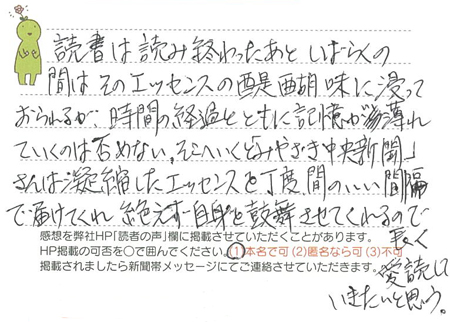 読書は読み終わったあと しばらくの
間はそのエッセンスの醍醐味に浸って
おられるが、時間の経過とともに記憶が薄れ
ていくのは否めない。そこへいくと「みやざき中央新聞」
さんは凝縮したエッセンスを丁度、間のいい間隔
で届けてくれ 絶えず自身を鼓舞させてくれるので
長く
愛読して
いきたいと思う。
感想を弊社HP「読者の声」欄に掲載させていただくことがあります。
HP掲載の可否を○で囲んでください。(1)本名で可 (2)匿名なら可 (3)不可
掲載されましたら新聞帯メッセージにてご連絡させていただきます。